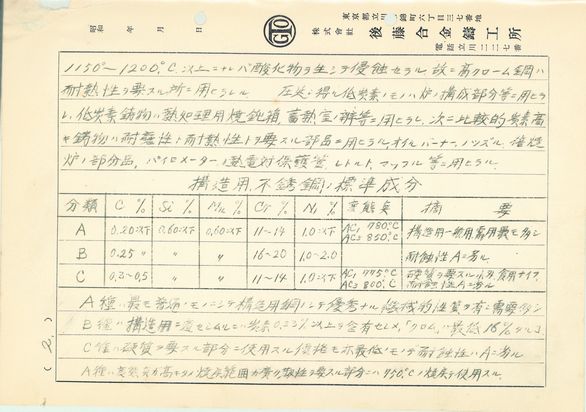 東京都立川市錦町六丁目三七番地
株式會社 後藤合金鑄工所
電話立川二二七番
昭和 年 月 日
GIO
1150°〜1200°C以上ニナレバ酸化物ヲ生ジテ侵蝕セラル 故ニ高クローム鋼ハ
耐熱性ヲ要スル所ニ用ヒラル
低炭素鋳物ハ熱処理用焼鈍箱 蓄熱室ノ 等ニ用ヒラレ 次ニ比較的炭素高
キ鋳物ハ耐蝕性ト耐熱性トヲ要スル部品ニ用ヒラル オイルバーナー ノッズル 熔焼
炉ノ部分品 パイロメーターノ熱電対保護管 レトルト マッフル等ニ用ヒラル
構造用不銹鋼ノ標準成分
分類 C % Si % Mn % Cr % Ni % 変態点 摘要
A 0.20以下 0.60以下 0.60以下 11〜14 1.0以下 AC₁ 780°C AC₃ 850°C 構造用一般用需用最モ多シ
B 0.25〃 〃 〃 16〜20 1.0〜2.0 耐蝕性Aニ劣ル
C 0.3〜0.5 〃 〃 11〜14 1.0以下 AC₁ 775°C AC₃ 800°C 硬質ヲ要スル 食用ナイフ 耐蝕性Aニ劣ル
A種ハ最モ普通ノモノニシテ構造用鋼トシテ優秀ナル機械的性質ヲ有シ需要多シ
B種ハ構造用ニ適セシムルニハ炭素0.25%以上ヲ含有セシメ「クロム」最低16%
C種ハ硬質ヲ要スル部分ニ使用スル価格モ亦最低ノモノデ耐蝕性ハAニ劣ル
A種ハ変態点ガ高キタメ焼戻範囲ガ廣ク 性ヲ要スル部分ニハ750°Cノ焼戻シ使用スル
(2)